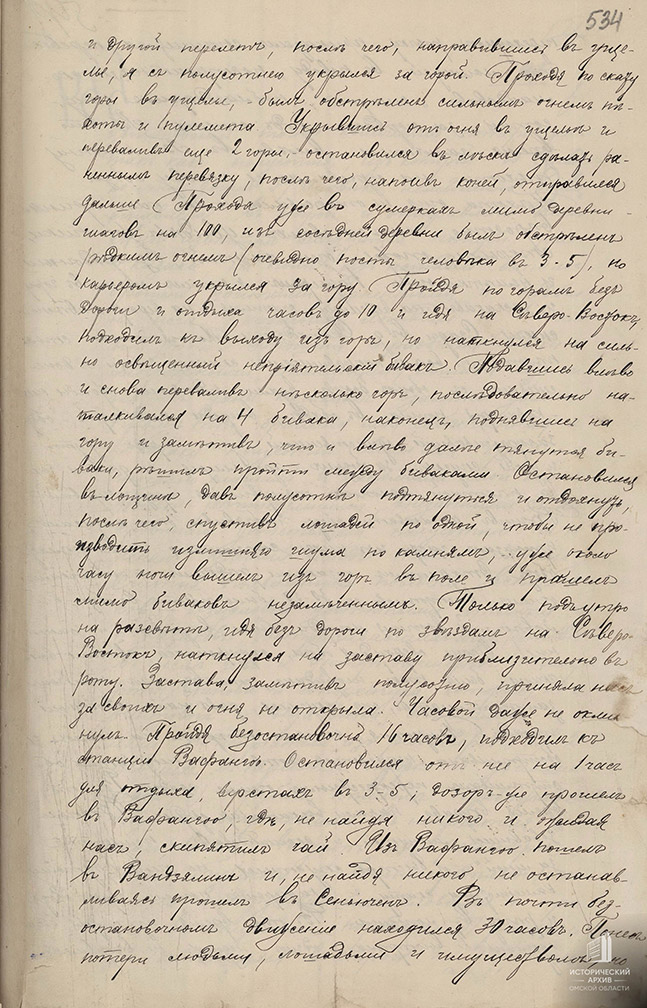 534
и другой перелетъ, послѣ чего, направившись въ уще-
лье, я съ полусотнею укрылся за горой. Проходя по скату
горы въ ущелье, - былъ обстрѣленъ сильнымъ огнемъ пѣ-
хоты и пулемета. Укрывшись отъ огня въ ущелье и
переваливъ еще 2 горы, - остановился въ сдѣлать ра-
неннымъ перевязку, послѣ чего, напоивъ коней, отправился
далѣе. Проходя уже въ сумеркахъ мимо деревни -
шаговъ на 100, изъ сосѣдней деревни былъ обстрѣленъ
рѣдкимъ огнемъ (очевидно постъ человѣка въ 3-5), но
карьеромъ укрылся за гору. Пройдя по горамъ безъ
дороги и отдыха часовъ до 10 и идя на Сѣверо-Востокъ,
подходилъ къ выходу изъ горъ, но наткнулся на силь-
но освѣщенный непріятельскій бивакъ. Подавшись влѣво
и снова переваливъ нѣсколько горъ, послѣдовательно на-
талкивался на 4 бивака, наконецъ, поднявшись на
гору и замѣтивъ, что и влѣво далѣе тянутся би-
ваки, рѣшилъ пройти между биваками. Остановился
въ лощинѣ, давъ полусотнѣ подтянуться и отдохнуть,
послѣ чего, спустивъ лошадей по одной, чтобы не про-
изводить излишняго шума по камнямъ, - уже около
часу ночи вышелъ изъ горъ въ поле и прошелъ
мимо биваковъ незамѣченнымъ. Только подъ утро
на разсвѣтѣ, идя безъ дороги по звѣздамъ на Сѣверо-
Востокъ, наткнулся на заставу приблизительно въ
роту. Застава, замѣтивъ полусотню, приняла насъ
за своихъ и огня не открыла. Часовой даже не оклик
нулъ. Пройдя безостановочно 16 часовъ, подходилъ къ
станціи Вафангоо. Остановился отъ нее на 1 часъ
для отдыха, верстахъ въ 3-5; дозоръ-же прошелъ
въ Вафангоо, гдѣ, не найдя никого и ожидая
насъ, скипятилъ чай. Изъ Вафангоо пошелъ
въ Вандзялинъ и, не найдя никого, не останав-
ливаясь прошелъ въ Сеньюченъ. Въ почти без-
остановочномъ движеніи находился 30 часовъ.
потери людьми, лошадьми и имуществомъ
ИСТОРИЧЕСКИЙ
АРХИВ
ОМСКОЙ ОБЛАСТИ